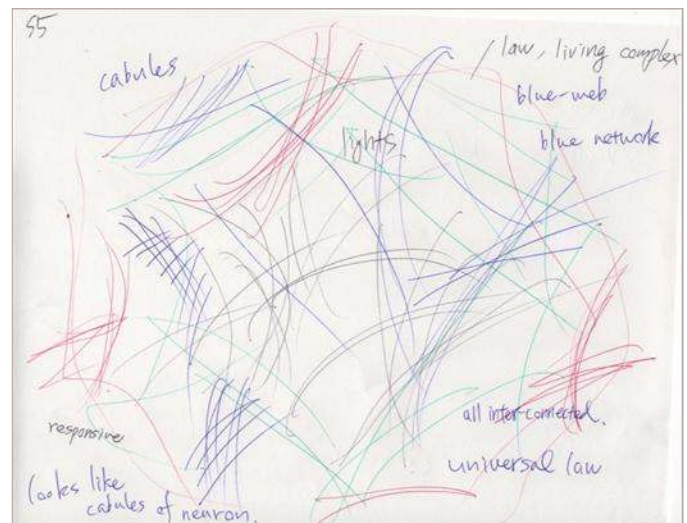 55
cabules
/ law, living complex
blue-web
blue network
lights
responsive
all inter-connected.
universal law
looks like
cabules of neuron.